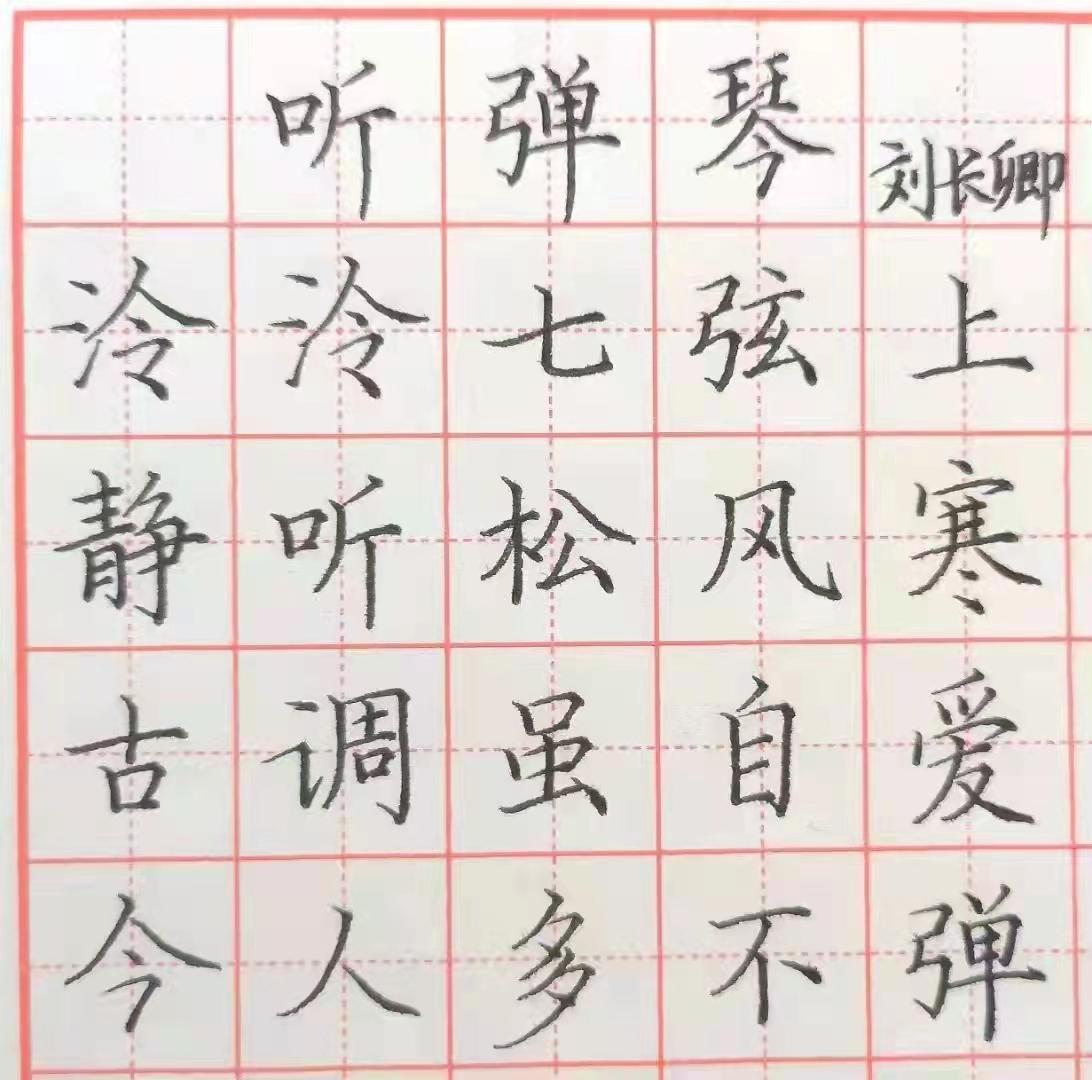 听弹琴 刘长卿
泠泠七弦上
静听松风寒
古调虽自爱
今人多不弹